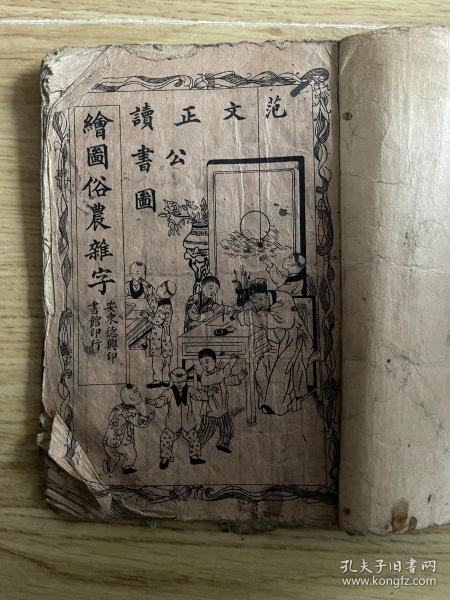 范文正
公
讀書圖
繪圖俗農雜字
安東德興印
書館印行
孔夫子旧书网
www.kongfz.com